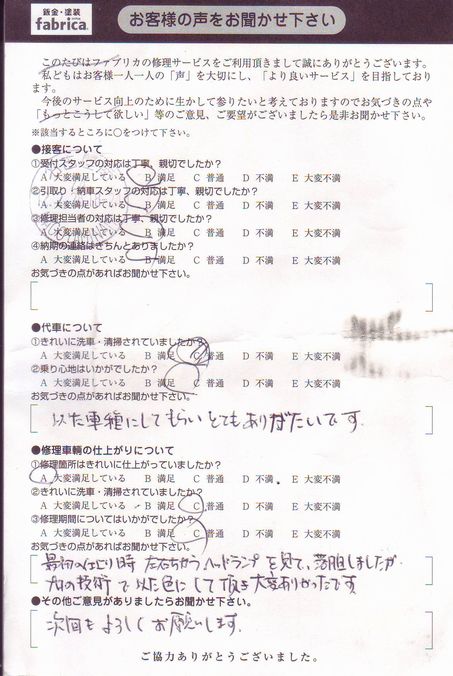 鈑金・塗装
fabrica.
お客様の声をお聞かせ下さい
このたびはファブリカの修理サービスをご利用頂きまして誠にありがとうございます。
私どもはお客様一人一人の「声」を大切にし、「より良いサービス」を目指しており
ます。
今後のサービス向上のために生かして参りたいと考えておりますのでお気づきの点や
「もっとこうして欲しい」等のご意見、ご要望がございましたら是非お聞かせ下さい。
※該当するところに○をつけて下さい。
●接客について
①受付スタッフの対応は丁寧、親切でしたか?
A 大変満足している B 満足 C 普通 D 不満 E 大変不満
②引取り・納車スタッフの対応は丁寧、親切でしたか?
A 大変満足している B 満足 C 普通 D 不満 E 大変不満
③修理担当者の対応は丁寧、親切でしたか?
A 大変満足している B 満足 C 普通 D 不満 E 大変不満
④納期の連絡はきちんとありましたか?
A 大変満足している B 満足 C 普通 D 不満 E 大変不満
お気づきの点があればお聞かせ下さい。
●代車について
①きれいに洗車・清掃されていましたか?
A 大変満足している B 満足 C 普通 D 不満 E 大変不満
②乗り心地はいかがでしたか?
A 大変満足している B 満足 C 普通 D 不満 E 大変不満
お気づきの点があればお聞かせ下さい。
似た車種にしてもらいとてもありがたいです.
●修理車輌の仕上がりについて
①修理箇所はきれいに仕上がっていましたか?
A 大変満足している B 満足 C 普通 D 不満 E 大変不満
②きれいに洗車・清掃されていましたか?
A 大変満足している B 満足 C 普通 D 不満 E 大変不満
③修理期間についてはいかがでしたか?
A 大変満足している B 満足 C 普通 D 不満 E 大変不満
お気づきの点があればお聞かせ下さい。
最初の仕上り時 左右ちがうヘッドランプを見て、落胆しましたが
プロの技術で似た色にして頂き大変ありがたいです
●その他ご意見がありましたらお聞かせ下さい。
次回もよろしくお願いします.
ご協力ありがとうございました。